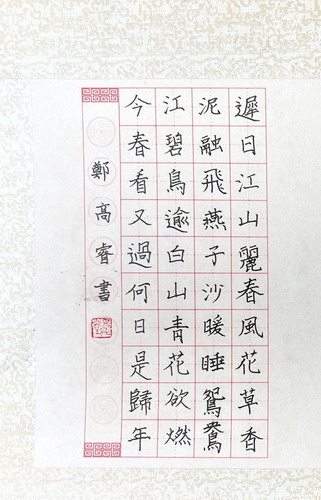 遲日江山麗春風花草香
泥融飛燕子沙暖睡鴛鴦
江碧鳥逾白山青花欲燃
今春看又過何日是歸年
鄭高睿書